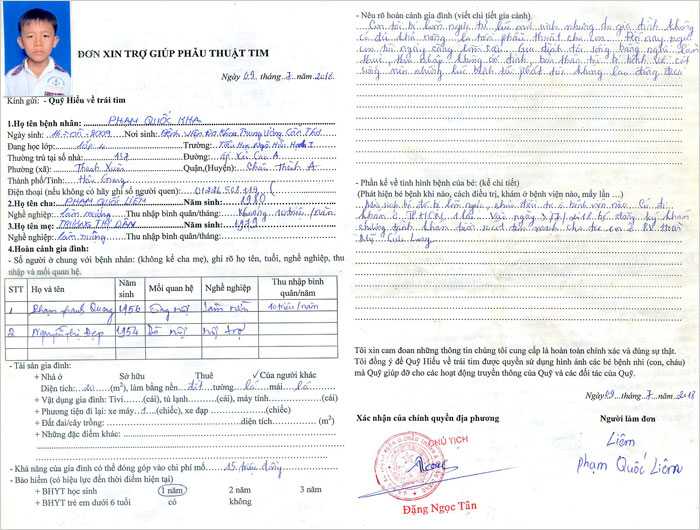 ĐƠN XIN TRỢ GIÚP PHẪU THUẬT TIM
Ngày 09 tháng 7 năm 2018
Kính gửi: - Quỹ Hiểu về trái tim
1.Họ tên bệnh nhân: PHẠM QUỐC KHA
Ngày sinh: 2009 Nơi sinh: Bệnh viện Đa Khoa Trung Ương Cần Thơ
Đang học lớp: lớp 4 Trường: Tiểu Học Ngô Hữu Hạnh I
Thường trú tại số nhà: 137 Đường: ấp Xẻo Cao A
Phường (xã): Thạnh Xuân Quận,(Huyện): Châu Thành A
Thành phố/Tỉnh: Hậu Giang
Điện thoại (nếu không có hãy ghi số người quen):
2.Họ tên cha: PHẠM QUỐC LIÊM Năm sinh: 1980
Nghề nghiệp: làm mướn Thu nhập bình quân/tháng: Khoảng 10 triệu/năm
3.Họ tên mẹ: TRƯƠNG THỊ DÂN Năm sinh: 1979
Nghề nghiệp: làm mướn Thu nhập bình quân/tháng:
4.Hoàn cảnh gia đình:
- Số người ở chung với bệnh nhân: (không kể cha mẹ), ghi rõ họ tên, tuổi, nghề nghiệp, thu
nhập và mối quan hệ.
STT Họ và tên Năm sinh Mối quan hệ Nghề nghiệp Thu nhập bình quân/năm
1 Phạm Quang 1956 Ông nội làm 10 triệu/năm
2 Nguyễn Thị Đẹp 1954 Bà nội nội trợ
- Tài sản gia đình:
+ Nhà ở Sở hữu Thuê ✓ Của người khác
Diện tích: 20 (m²), làm bằng nền đất tường lá mái lá
+ Vật dụng gia đình: Tivi (cái), tủ lạnh (cái), máy tính (cái)
+ Phương tiện đi lại: xe máy 1 (chiếc), xe đạp (chiếc)
+ Đất đai/cây trồng: diện tích (m²)
+ Những đặc điểm khác:
- Khả năng của gia đình có thể đóng góp vào chi phí mổ 15 triệu đồng
- Bảo hiểm (có hiệu lực đến thời điểm hiện tại)
+ BHYT học sinh 1 năm 2 năm 3 năm
+ BHYT trẻ em dưới 6 tuổi có không
- Nêu rõ hoàn cảnh gia đình (viết chi tiết gia cảnh).
Con tôi bị bệnh tim từ lúc mới sinh nhưng do gia đình không
có đủ khả năng lo tiền phẫu thuật cho con. Đến nay
con tôi ngày càng lớn. Gia định tôi sống bằng nghề làm
thuê, thu nhập không cố định, bản thân tôi bị bệnh
sống nên những lúc bệnh tái phát tôi không lao động được
- Phần kể về tình hình bệnh của bé: (kể chi tiết)
(Phát hiện bé bệnh khi nào, cách điều trị, khám ở bệnh viện nào, mấy lần …)
Mới sinh bị bệnh, chưa điều trị ở bệnh viện nào. Có đi
khám ở TPHCM 1 lần. Vào ngày 3/7/2018 đăng ký khám
chương trình khám tim cho ở BV Hoàn
Mỹ Cửu Long
Tôi xin cam đoan những thông tin chúng tôi cung cấp là hoàn toàn chính xác và đúng sự thật.
Tôi đồng ý để Quỹ Hiểu về trái tim được quyền sử dụng hình ảnh các bé bệnh nhi (con, cháu)
mà Quỹ giúp đỡ cho các hoạt động truyền thông của Quỹ và các đối tác của Quỹ.
Ngày 09 tháng 7 năm 2018
Xác nhận của chính quyền địa phương Người làm đơn
CHỦ TỊCH
Liêm
Phạm Quốc Liêm
Đặng Ngọc Tân